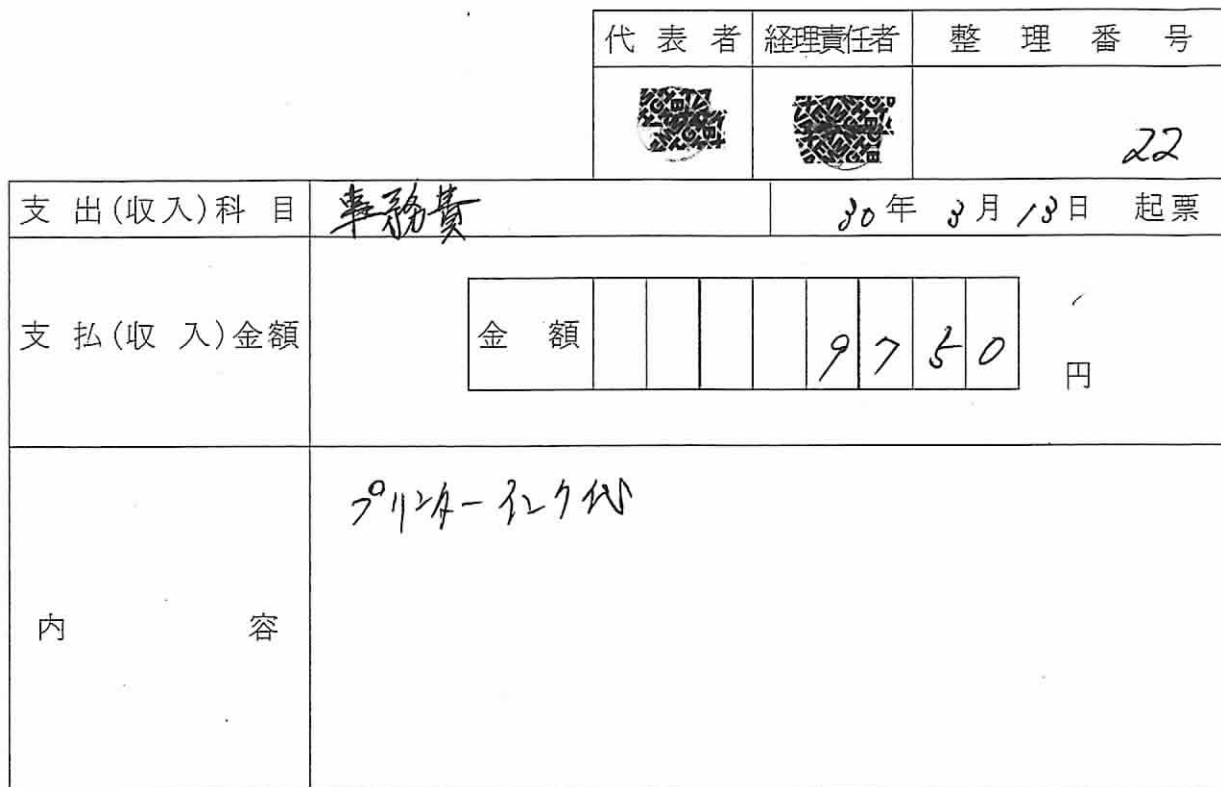 代表者 経理責任者 整理番号
22
支出(収入)科目 事務費 30年3月13日 起票
支払(収入)金額 金額 9750 円
プリンターインク代
内容